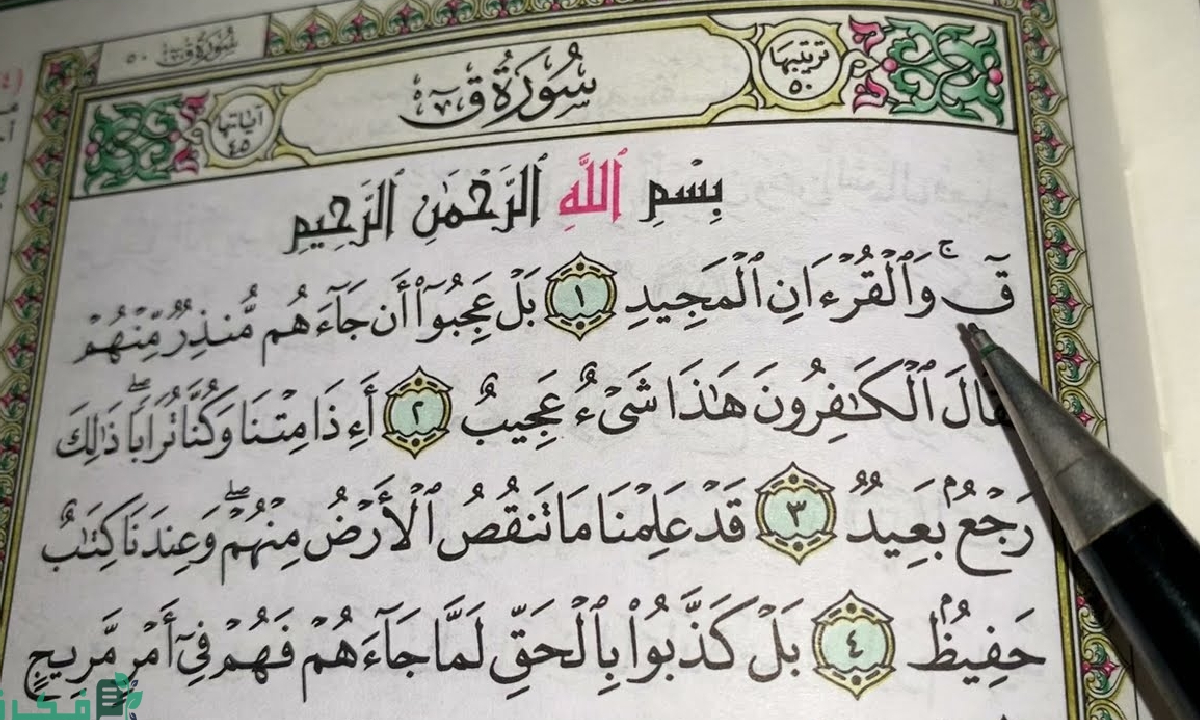 سُورَةُ قٓ ٥٠
ترتيبها ٥٠
سُورَةُ قٓ
آياتها ٤٥
بِسْمِ ٱللَّهِ ٱلرَّحْمَٰنِ ٱلرَّحِيمِ
قٓ ۚ وَٱلْقُرْءَانِ ٱلْمَجِيدِ ١ بَلْ عَجِبُوٓا۟ أَن جَآءَهُم مُّنذِرٌ مِّنْهُمْ
فَقَالَ ٱلْكَٰفِرُونَ هَٰذَا شَىْءٌ عَجِيبٌ ٢ أَءِذَا مِتْنَا وَكُنَّا تُرَابًا ۖ ذَٰلِكَ
رَجْعٌۢ بَعِيدٌ ٣ قَدْ عَلِمْنَا مَا تَنقُصُ ٱلْأَرْضُ مِنْهُمْ ۖ وَعِندَنَا كِتَٰبٌ
حَفِيظٌۢ ٤ بَلْ كَذَّبُوا۟ بِٱلْحَقِّ لَمَّا جَآءَهُمْ فَهُمْ فِىٓ أَمْرٍ مَّرِيجٍ